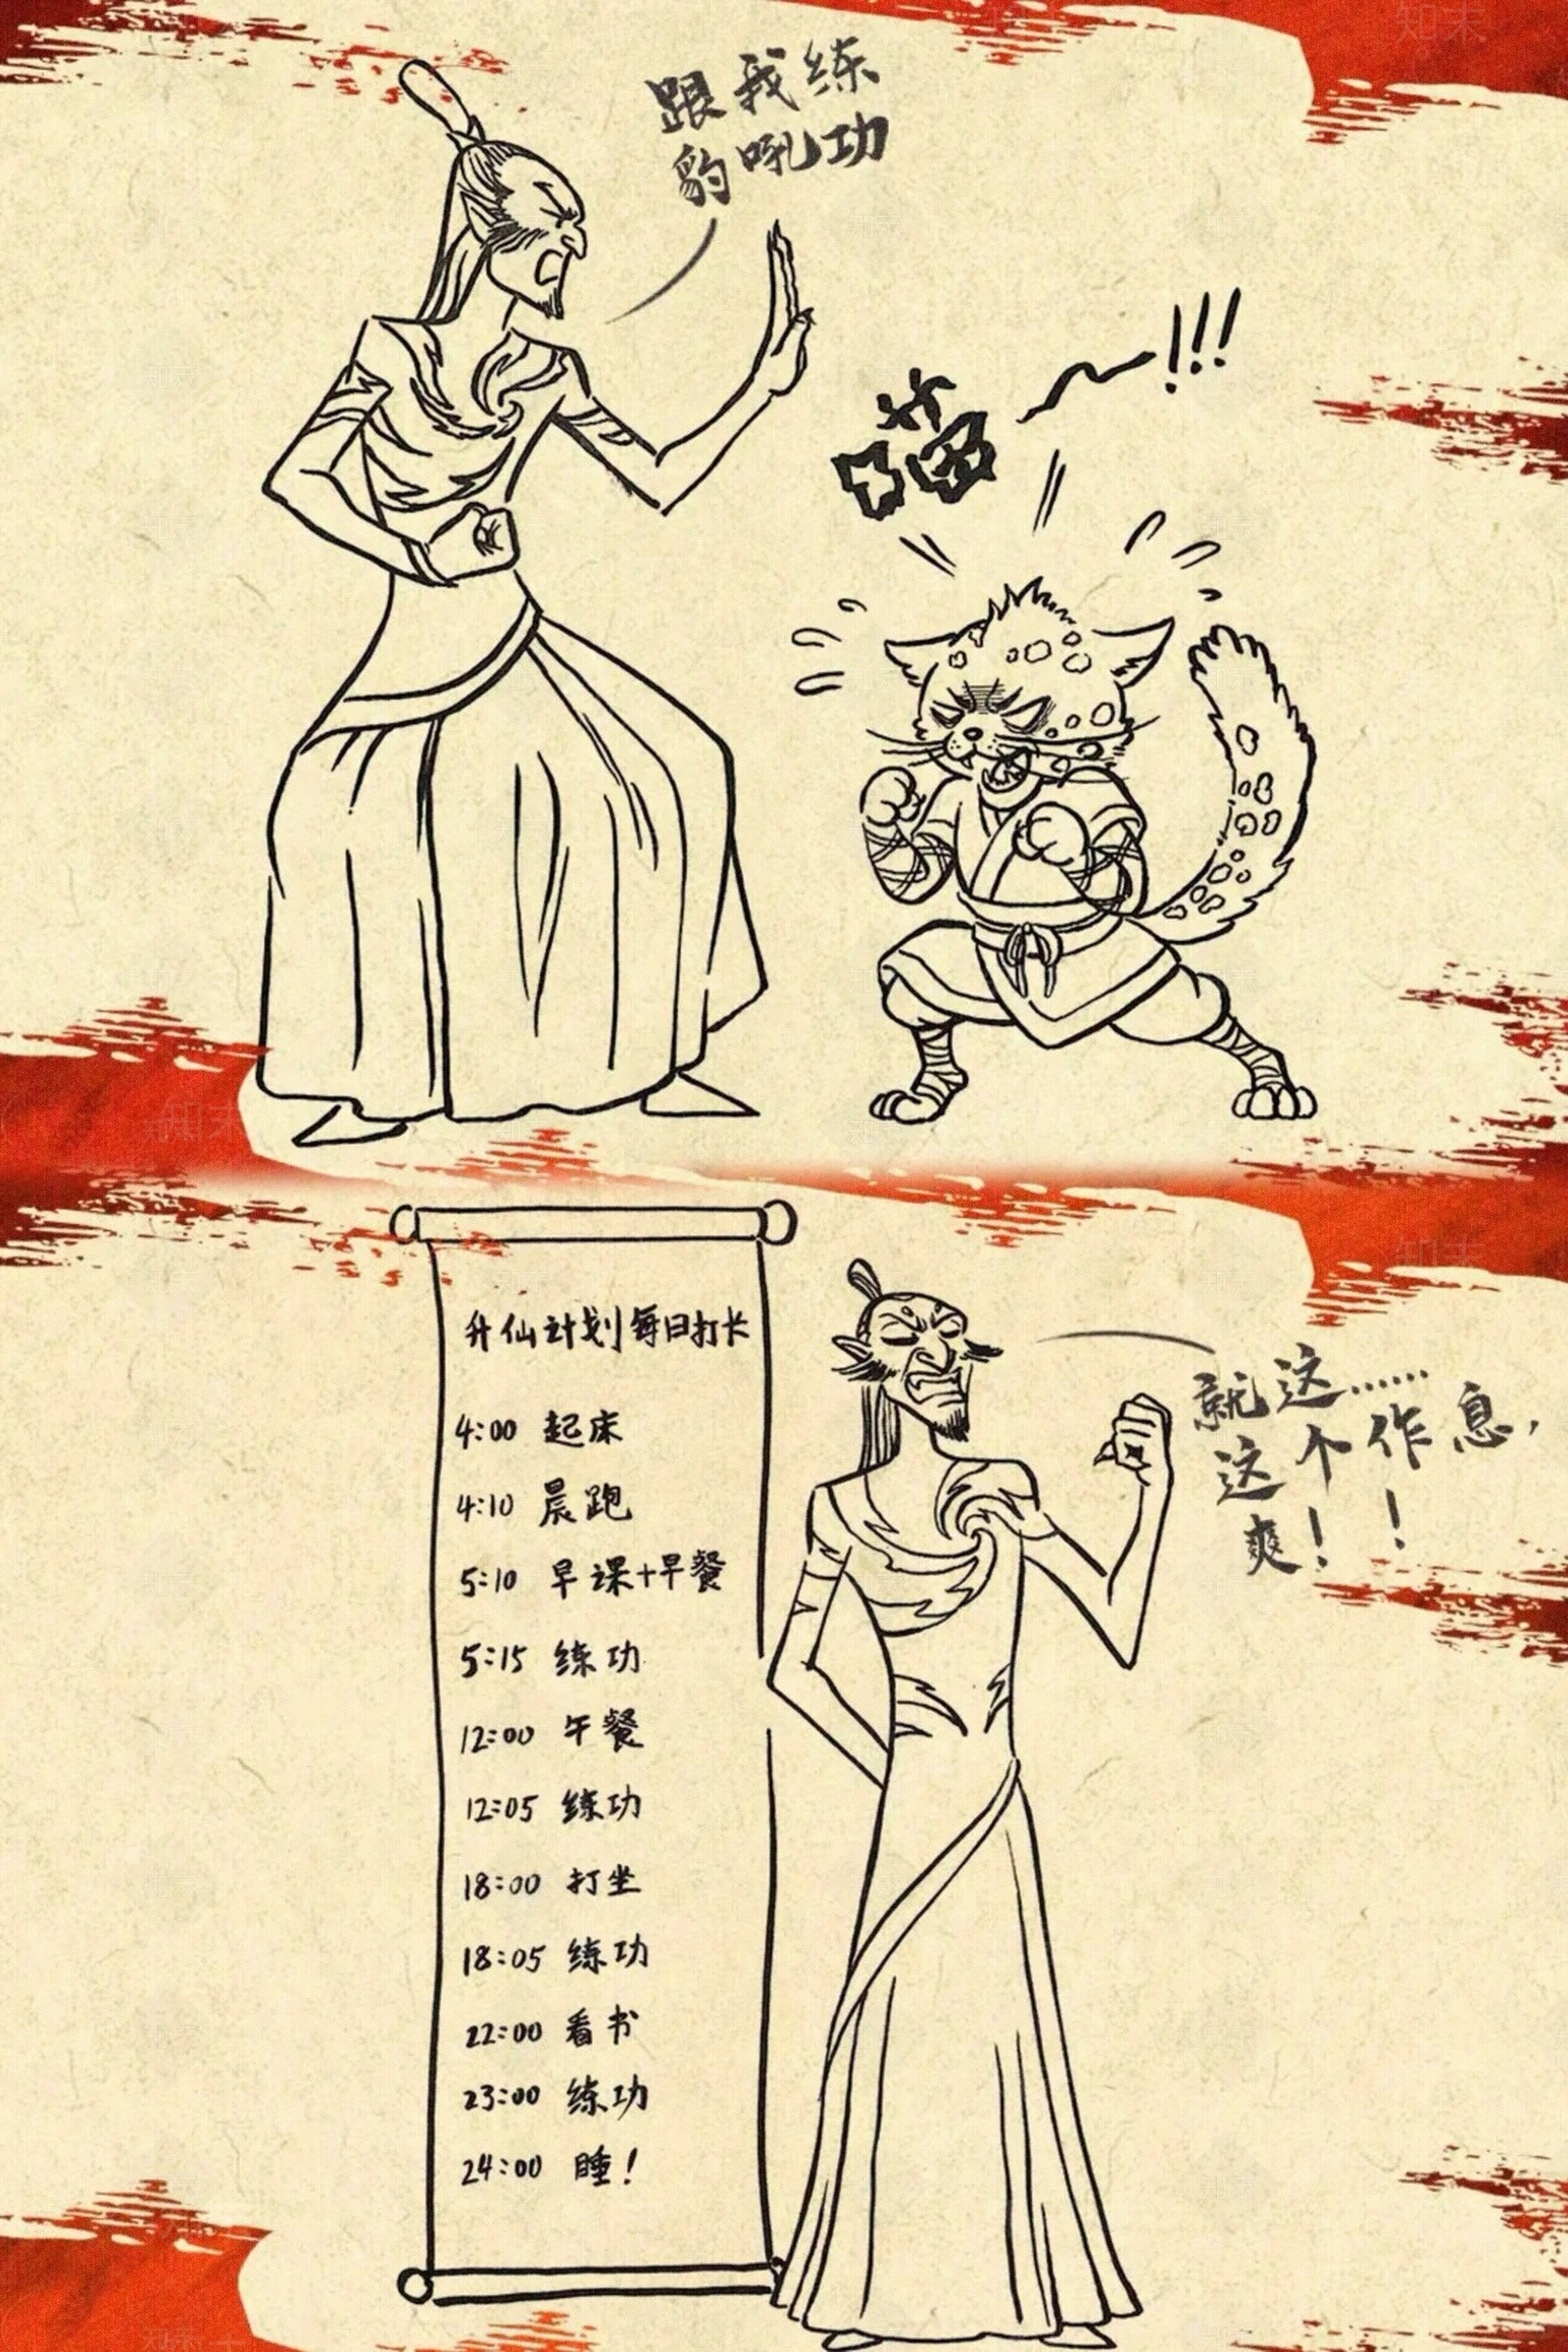 跟我练
豹吼功
喵~!!!
升仙计划每日打卡
4:00 起床
4:10 晨跑
5:10 早课+早餐
5:15 练功
12:00 午餐
12:05 练功
18:00 打坐
18:05 练功
22:00 看书
23:00 练功
24:00 睡!
就这……
这个作息,
爽!!
知末
知末
知末
知末